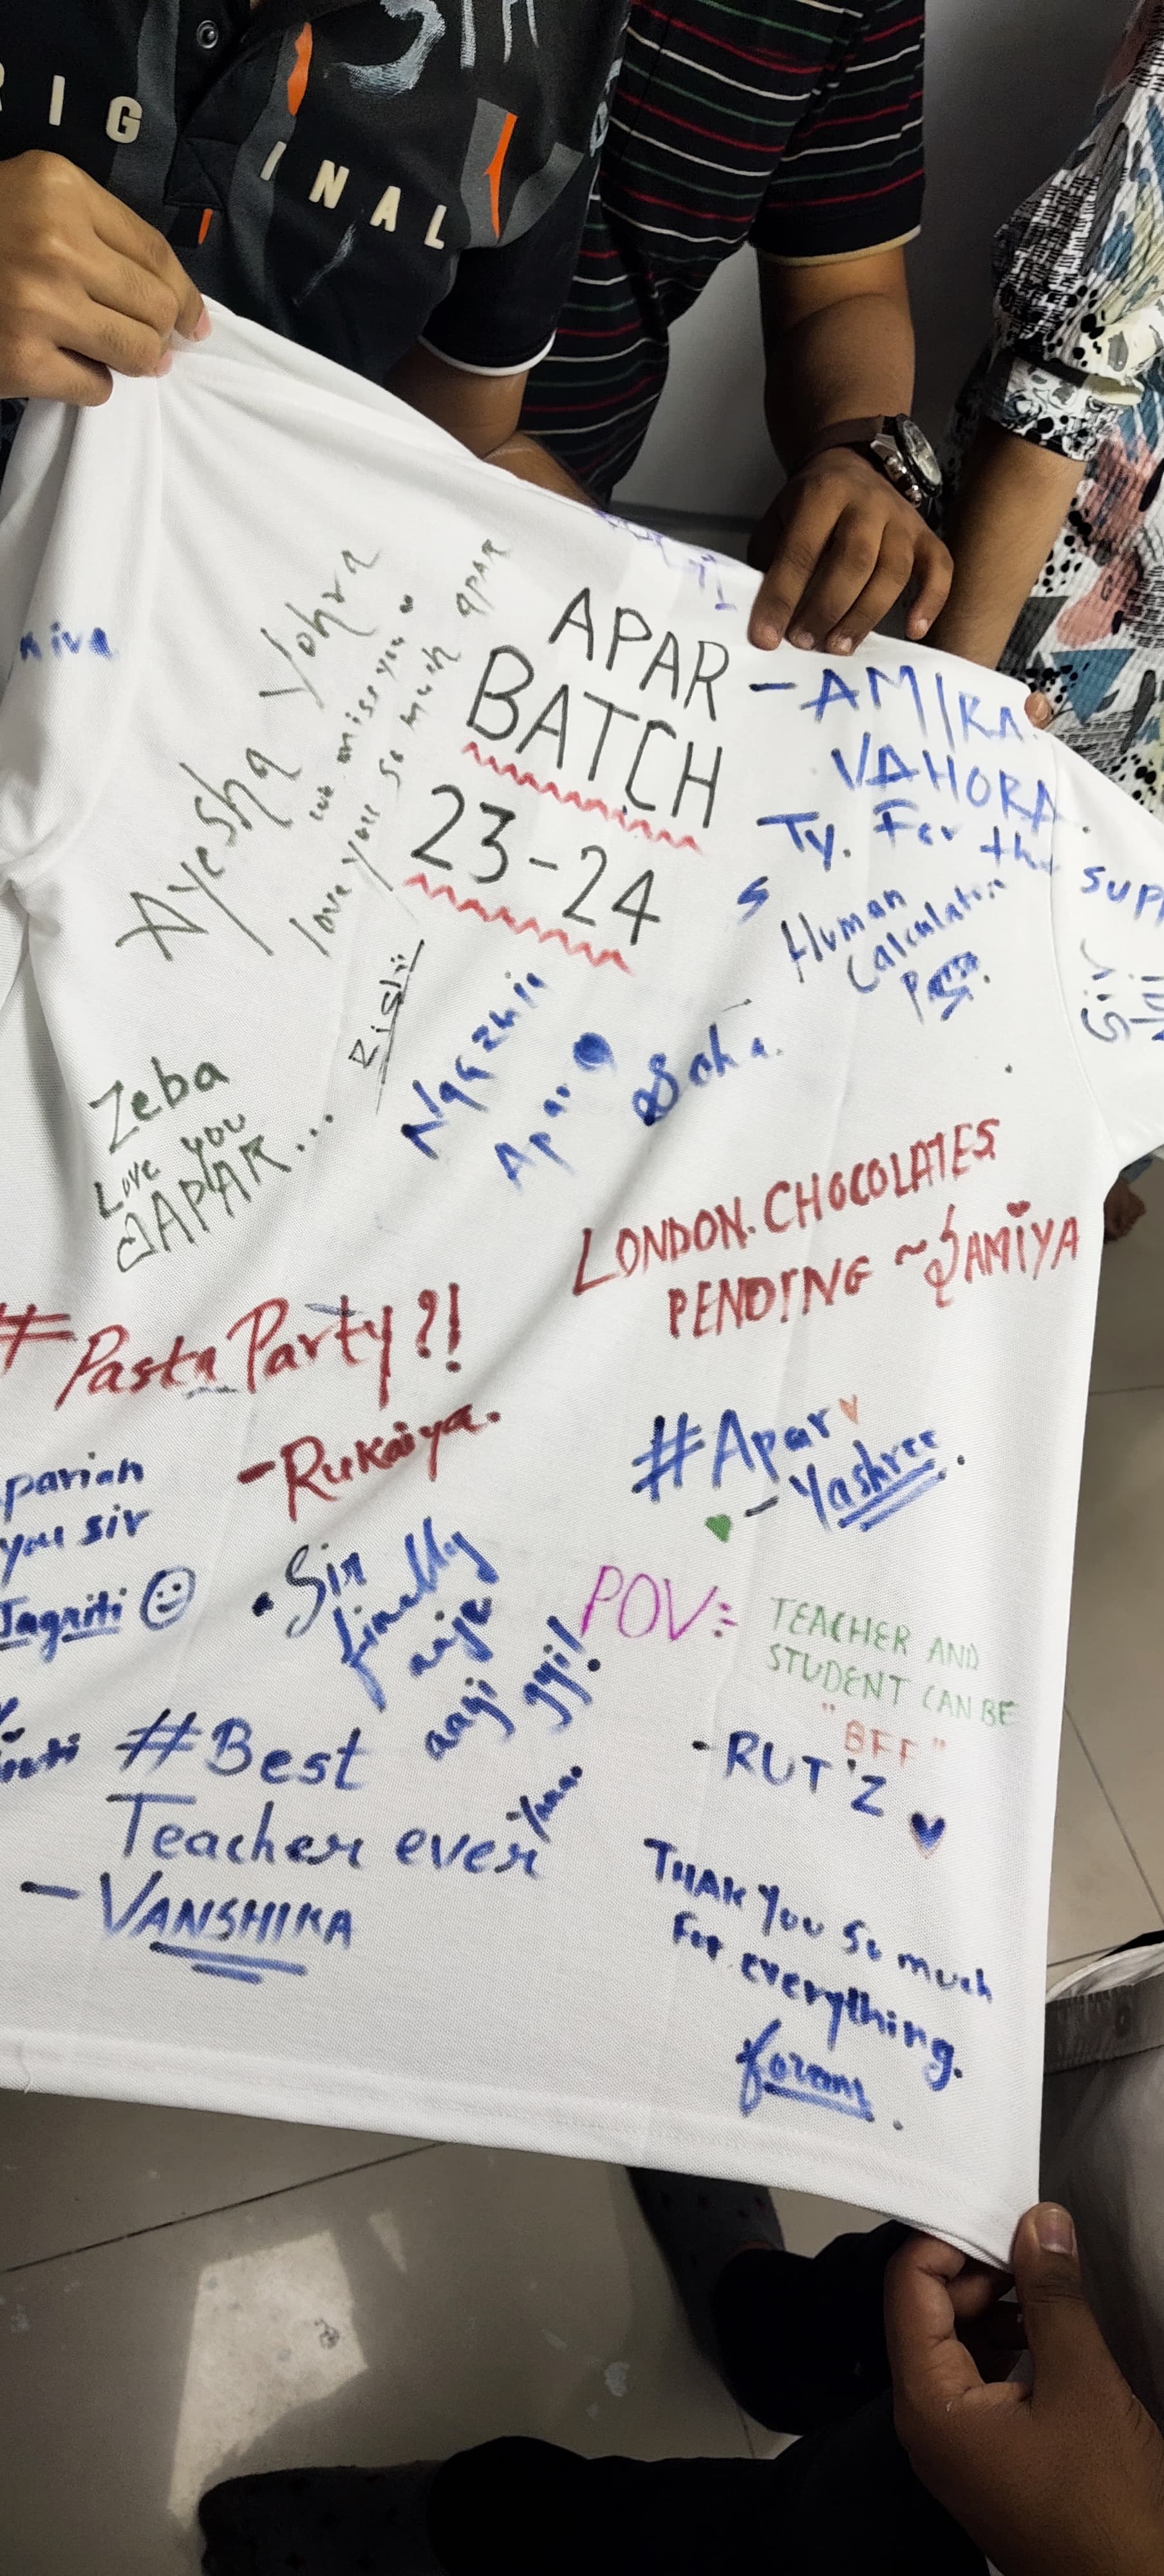 ORIGINAL
APAR
BATCH
23-24
Ayesha Vohra
we miss you
love you so much APAR
- AMIRA.
VAHORA.
Ty. For the supp
Human
Calculator
Rishi
Apar
Soha.
Zeba
Love you
APAR...
LONDON CHOCOLATES
PENDING ~SAMIYA
#Pasta Party?!
-Rukaiya.
#Apar
- Yashree.
parian
you sir
Jagriti
Sir
finally
aaji
POV:
TEACHER AND
STUDENT CAN BE
"BFF"
-RUT'Z
#Best
Teacher ever
- VANSHIKA
THAK YOU So much
For everything.
foram